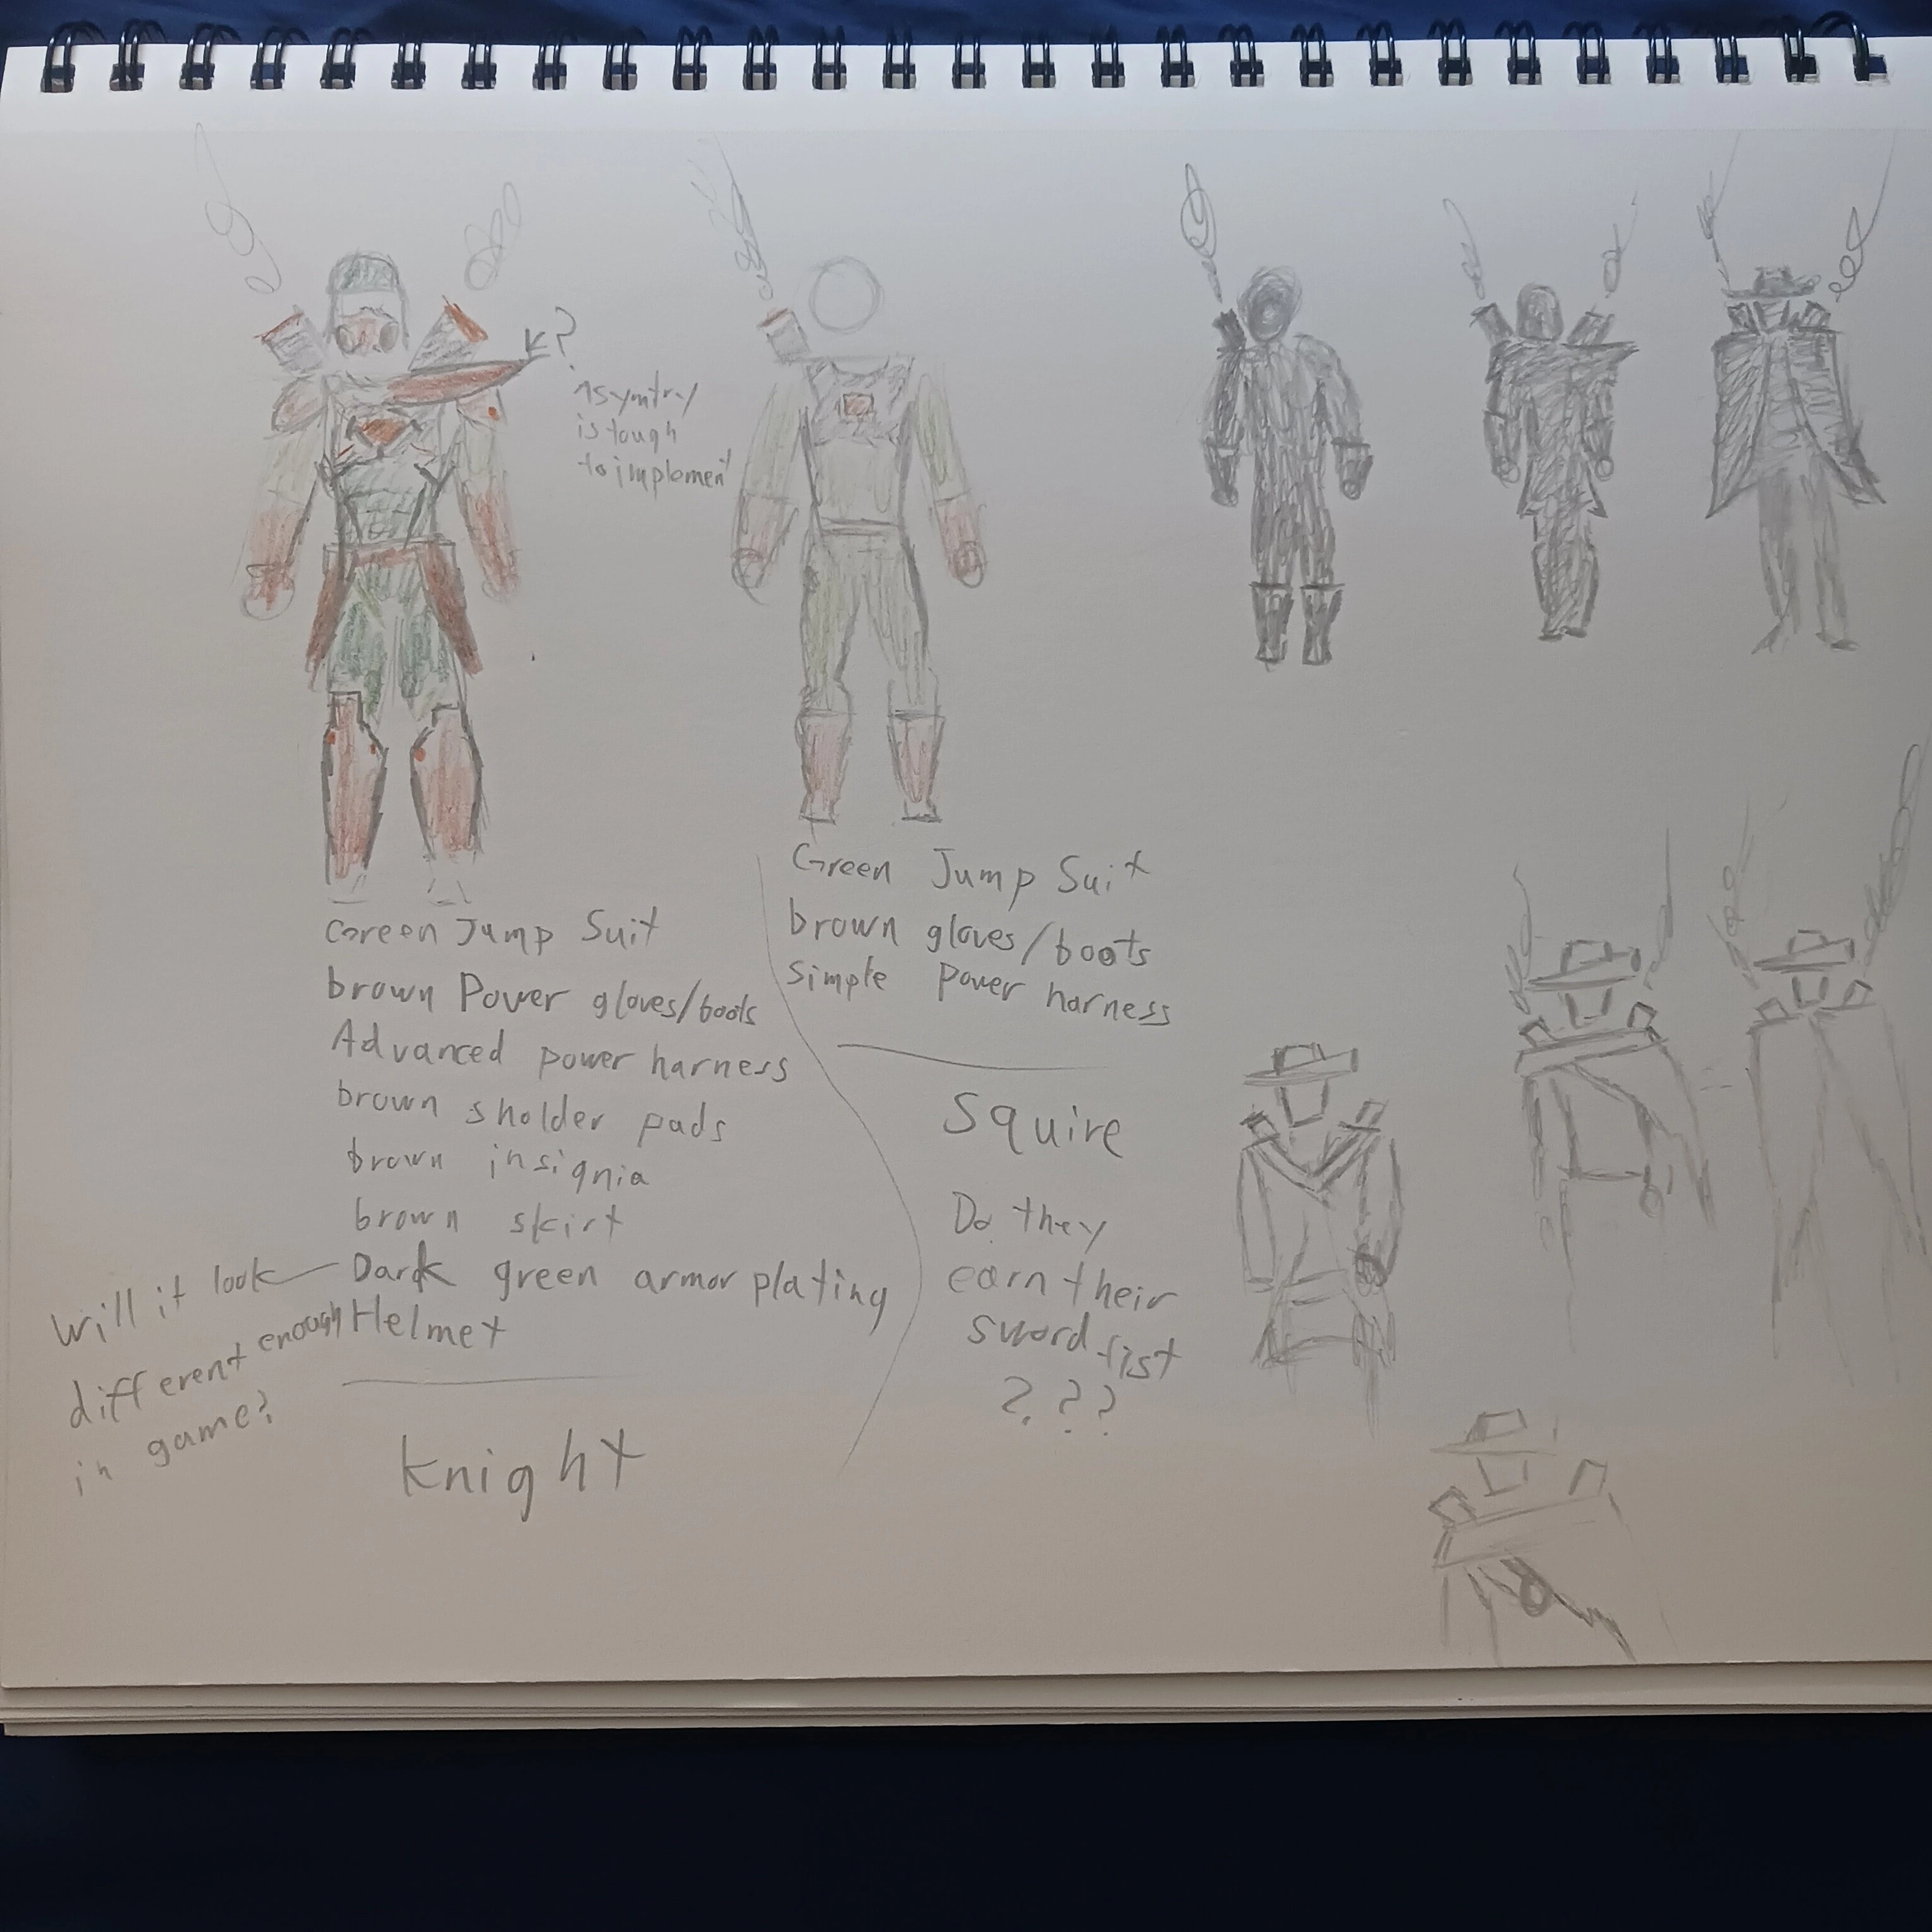 ?
Asymtry
is tough
to implement
Green Jump Suit
brown Power gloves/boots
Advanced power harness
brown sholder pads
brown insignia
brown skirt
Dark green armor plating
Helmet
will it look
different enough
in game?
Knight
Green Jump Suit
brown gloves/boots
simple power harness
Squire
Do they
earn their
sword fist
???